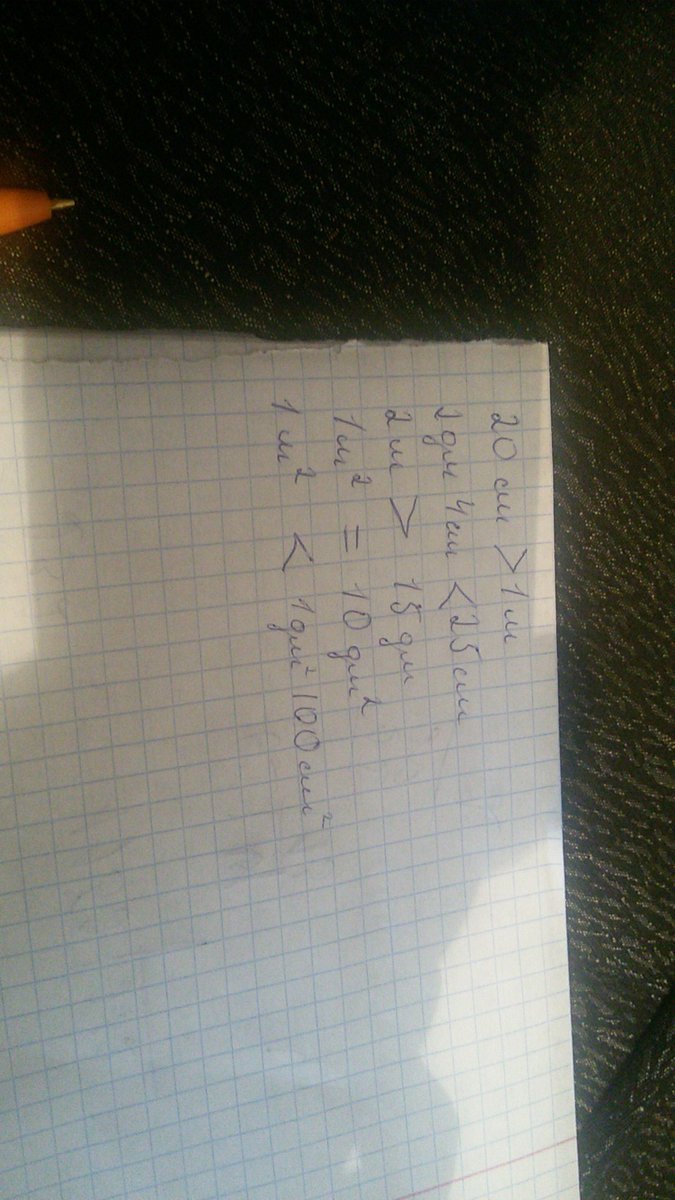 20 см > 1 м
2дм 4см < 25 см
2 м > 15 дм
1м² = 10 дм²
1 м² < 1 дм² 100 см²